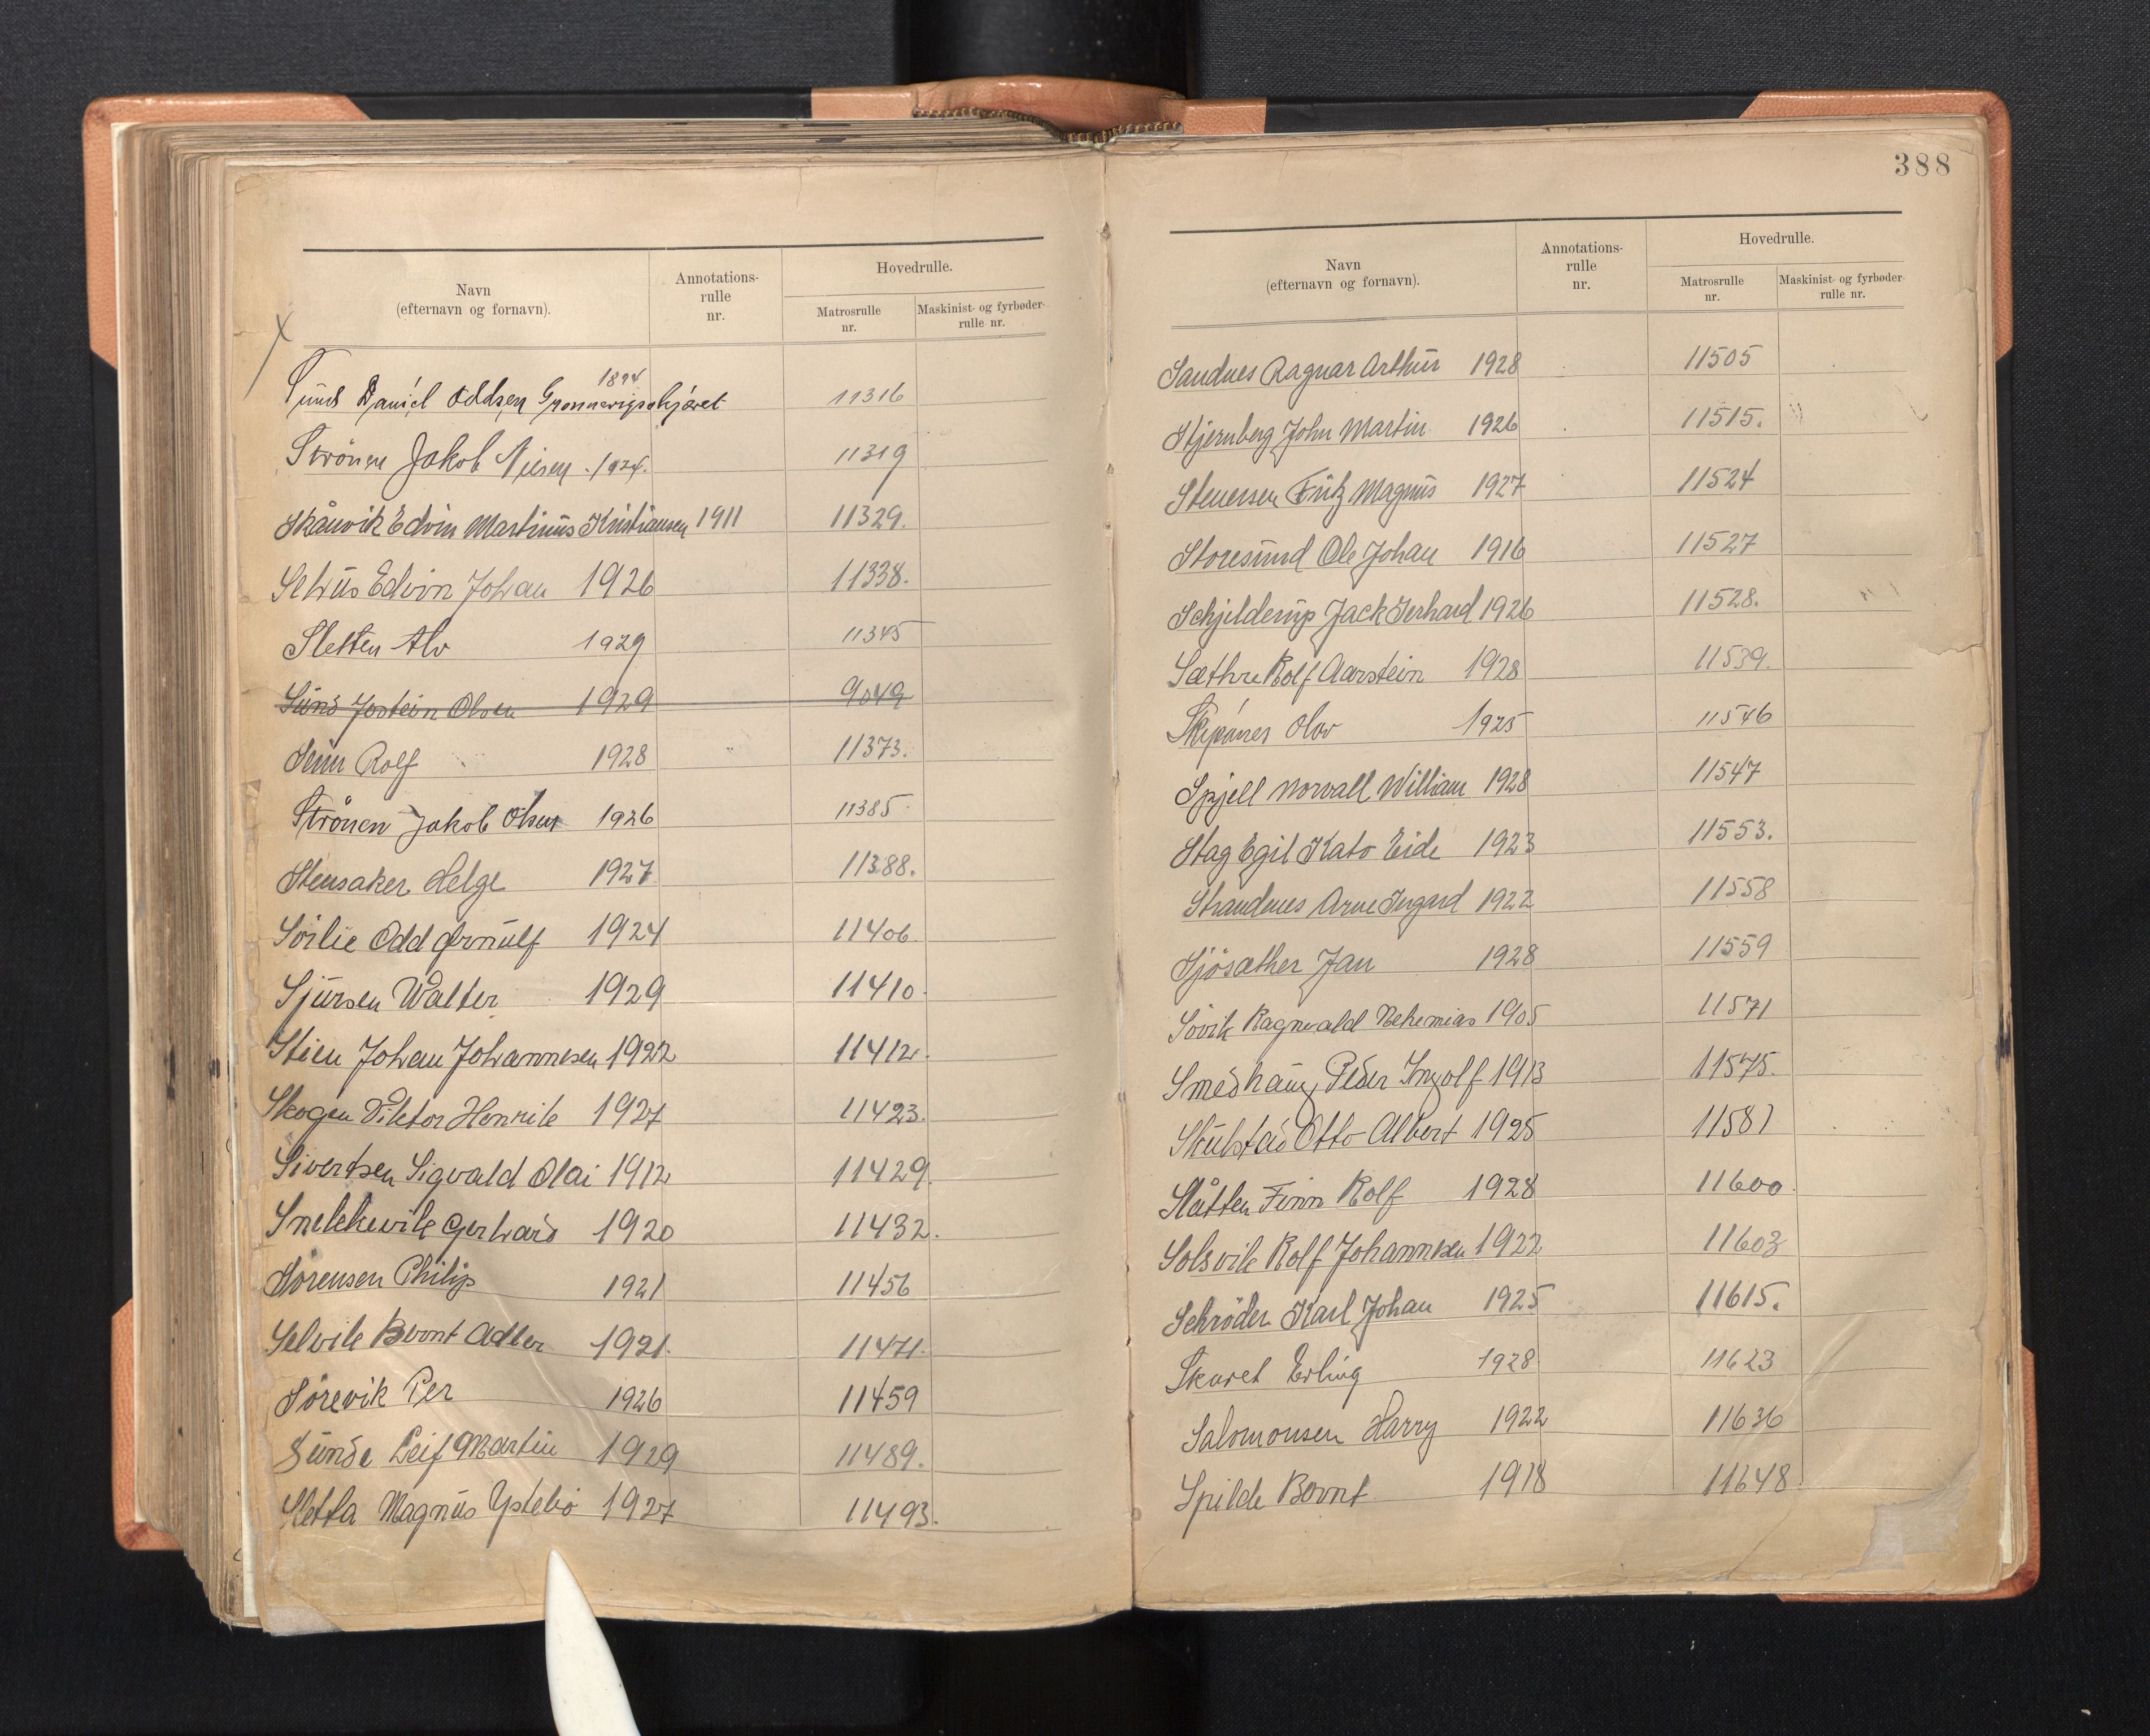 Navn
(efternavn og fornavn).
Annotations-
rulle
nr.
Hovedrulle.
Matrosrulle
nr.
Maskinist- og fyrbøder-
rulle nr.
1894
Sund Daniel Oddsen Grønnevigsskjæret 11316
Strönen Jakob Nilsen 1924. 11319
Skånvik Edvin Martinus Kristiansen 1911 11329.
Selvus Edvin Johan 1926 11338.
Sletten Alv 1929 11345
Sund Jostein Olsen 1929 9049
Senn Rolf 1928 11373.
Strönen Jakob Olsen 1926 11385
Stensaker Helge 1927 11388.
Sörlie Odd Arnulf 1924 11406.
Sjursen Walter 1929 11410.
Stien Johan Johannesen 1922 11412.
Skogen Viktor Henrik 1927 11423.
Sivertsen Sigvald Olai 1912 11429.
Snekkevik Gerhard 1920 11432.
Sörensen Philip 1921 11456
Selvik Bernt Adler 1921. 11471.
Sörevik Per 1926 11459
Sunde Leif Martin 1929 11489.
Sletta Magnus Ystebö 1927 11493.
388
Navn
(efternavn og fornavn).
Annotations-
rulle
nr.
Hovedrulle.
Matrosrulle
nr.
Maskinist- og fyrbøder-
rulle nr.
Sandnes Ragnar Arthur 1928 11505
Stjernberg John Martin 1926 11515.
Stenersen Fritz Magnus 1927 11524
Storesund Ole Johan 1916 11527
Schjilderup Jack Gerhard 1926 11528.
Sæthre Rolf Aarstein 1928 11539.
Skipanes Olav 1925 11546
Spjell Norvall William 1928 11547
Stag Egil Kato Eide 1923 11553.
Strandenes Arne Ingard 1922 11558
Sjösæther Jan 1928 11559
Sövik Ragnvald Nehemias 1905 11571
Smedhaug Peder Ingolf 1913 11575.
Skulstad Otto Albert 1925 11581
Slåtten Finn Rolf 1928 11600.
Solsvik Rolf Johannesen 1922 11603
Schröder Karl Johan 1925 11615.
Skaret Erling 1928 11623
Salomonsen Harry 1922 11636
Spilde Bernt 1918 11648.